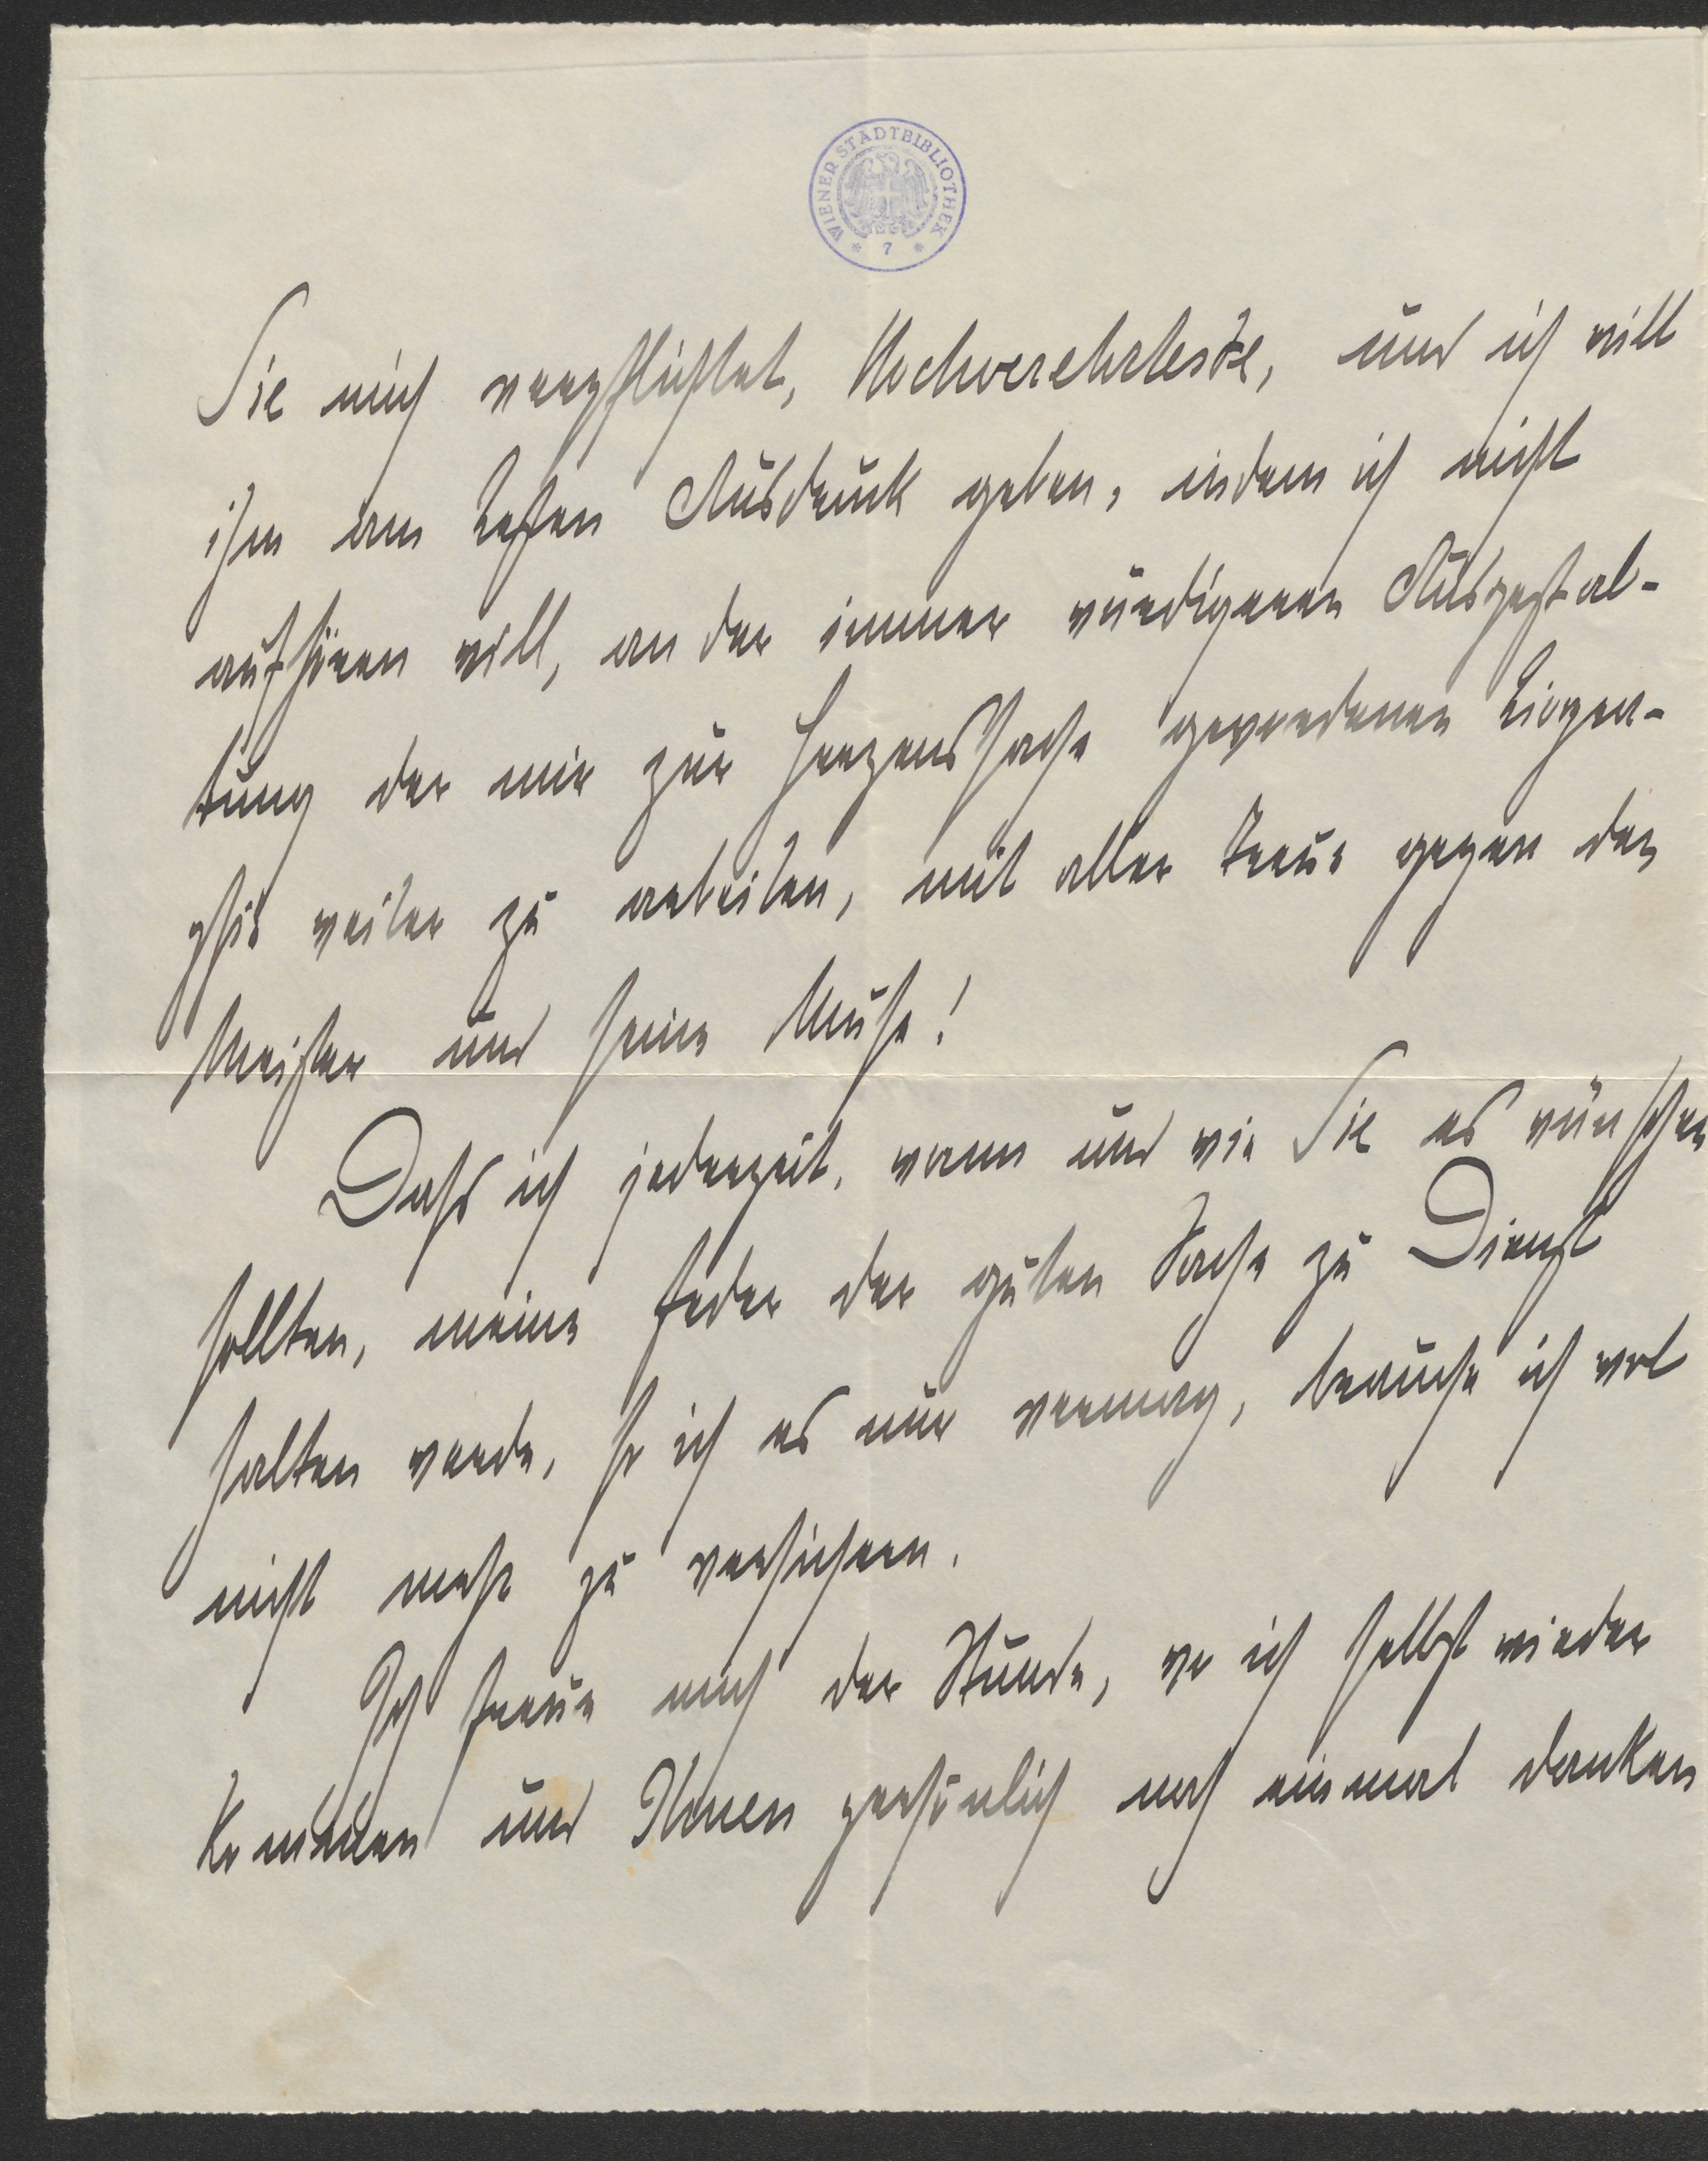 WIENER STADTBIBLIOTHEK
* 7 *
Sie mich verpflichtet, Hochverehrteste, und ich will
ihm am besten Ausdruck geben, indem ich nicht
aufhören will, an der immer würdigeren Ausgestal-
tung der mir zur Herzenssache gewordenen Biogra-
phie weiter zu arbeiten, mit aller Treue gegen den
Meister und seine Muse!
Dass ich jederzeit, wann und wie Sie es wünschen
sollten, meine Feder der guten Sache zu Dienst
halten werde, so ich es nur vermag, brauche ich wol
nicht mehr zu versichern.
Ich freue mich der Stunde, wo ich selbst wieder
kommen und Ihnen persönlich noch einmal danken